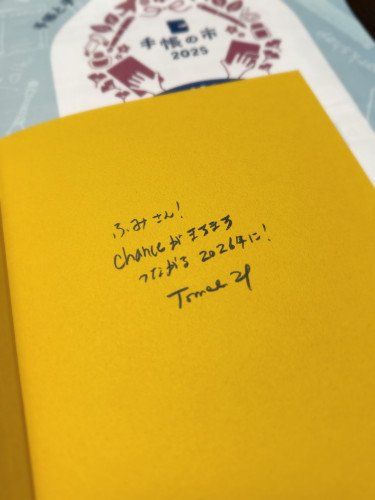 手帳の市
2025
ふみさん!
chanceがまろまろ
つながる 2026年に!